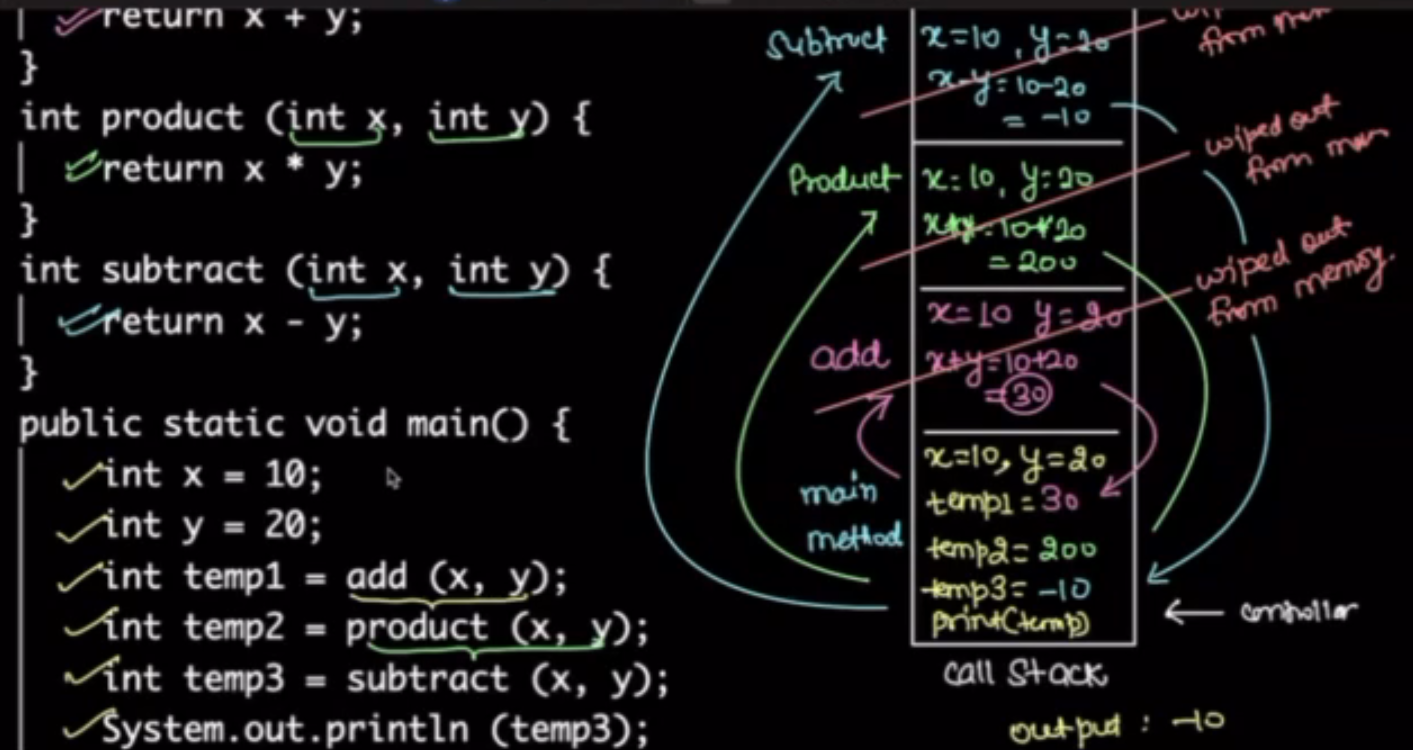 return x + y;
}
int product (int x, int y) {
return x * y;
}
int subtract (int x, int y) {
return x - y;
}
public static void main() {
int x = 10;
int y = 20;
int temp1 = add (x, y);
int temp2 = product (x, y);
int temp3 = subtract (x, y);
System.out.println (temp3);
Subtract
x=10, y=20
x-y=10-20
= -10
from
Product
x=10, y=20
=200
wiped out
from
add
x=10 y=20
x+y=10+20
=30
wiped out
from memory.
main
method
x=10, y=20
temp1=30
temp2=200
temp3=-10
print(temp)
controller
call stack
output : -10